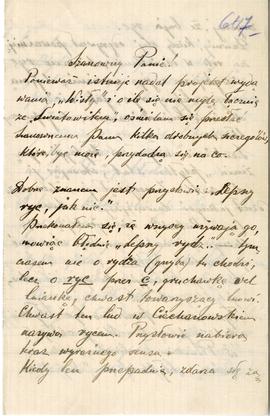 647
Szanowny Panie!
Ponieważ istnieje nadal projekt wyda
wania „Wisły" i o ile się nie mylę łącznie
ze „Światowidem", ośmielam się przesłać
Szanownemu Panu kilka drobnych szczegółów,
które, być może, przydadzą się na co.
Dobrze znanem jest przysłowie: „Lepszy
ryc, jak nic."
Przekonałem się, że wszyscy używają go,
mówiąc błędnie „lepszy rydz" — tym
czasem nie o rydza (grzyba) tu chodzi,
lecz o ryc przez c, gruchawkę vel
lniankę, chwast towarzyszący lnowi.
Chwast ten lud w Ciechanowskiem
nazywa rycem. Przysłowie nabiera
teraz wyraźnego sensu.
Kiedy len przepadnie, zdarza się, że